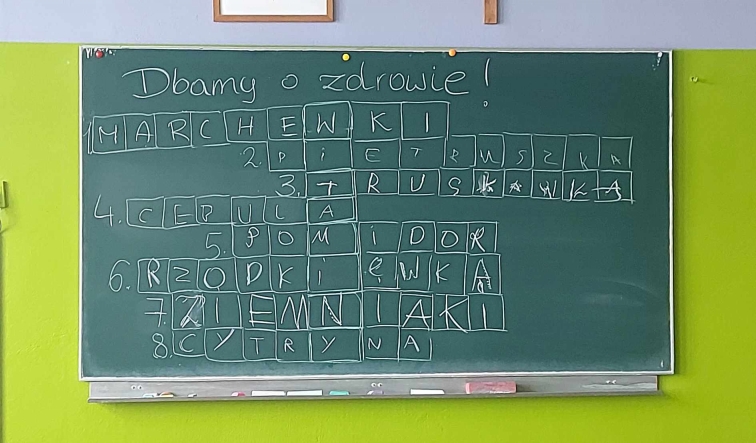 Dbamy o zdrowie!
1 MARCHEWKI
2. PiETRUSZKA
3. TRUSKAWKA
4. CEBULA
5. POMiDOR
6. RZODKiEWKA
7. ZIEMNIAKI
8. CYTRYNA